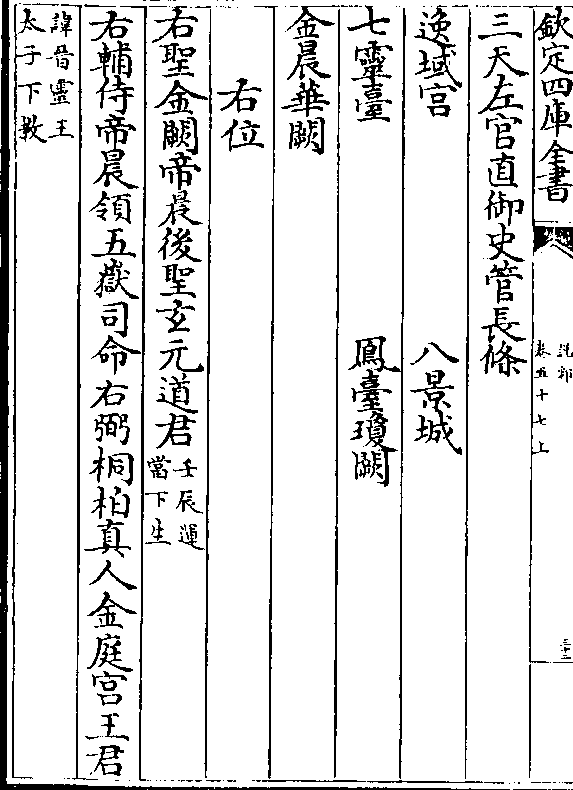 欽定四庫全書
說郛
卷五十七上
三十二
三天左官直御史管長條
逸域宮
八景城
七靈臺
鳳臺瓊闕
金晨華闕
右位
右聖金闕帝晨後聖玄元道君
壬辰運
當下生
右輔侍帝晨領五嶽司命右弼桐柏真人金庭宮王君
諱晉靈王
太子下教